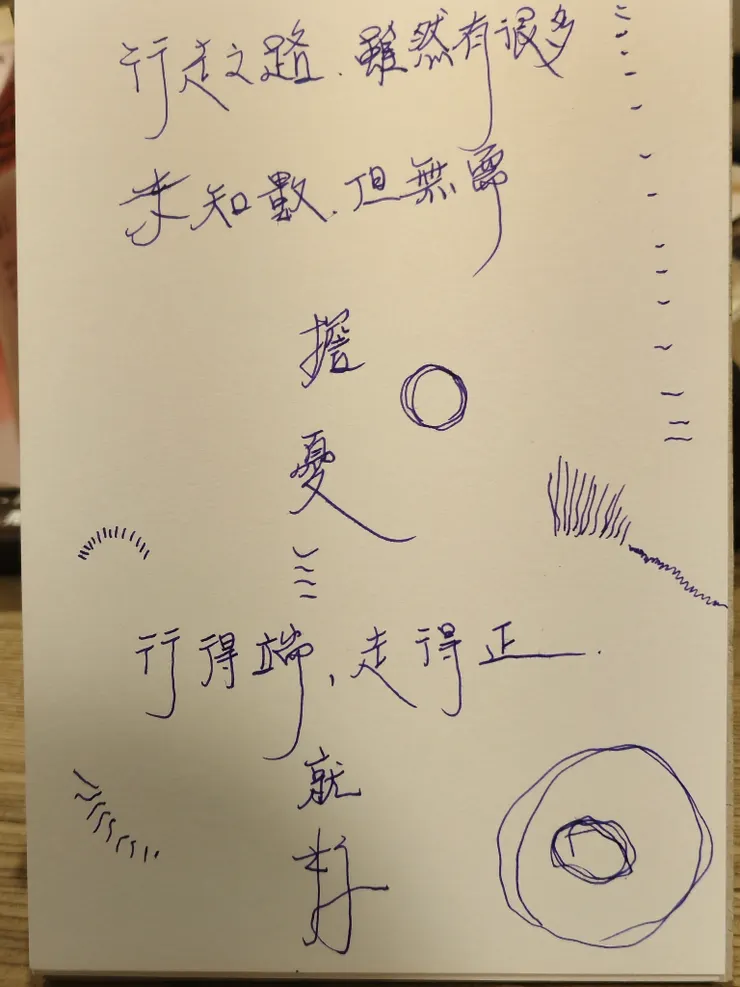 行走之路.雖然有很多
未知數.但無需
擔
憂
行得端,走得正.
就
好